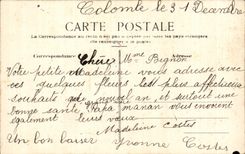 Colombe le 31 Décembre
CARTE POSTALE
La Correspondance au recto n'est pas acceptée par tous les pays étrangers
Correspondance Adresse
Chère Mme Bignon
Votre petite Madeleine vous adresse avec
ces quelques fleurs les plus affectueux
souhaits de nouvel an et surtout une
bonne santé Papa maman vous envoient
également leurs vœux
Madeleine Costes
Un bon baiser Yvonne Costes